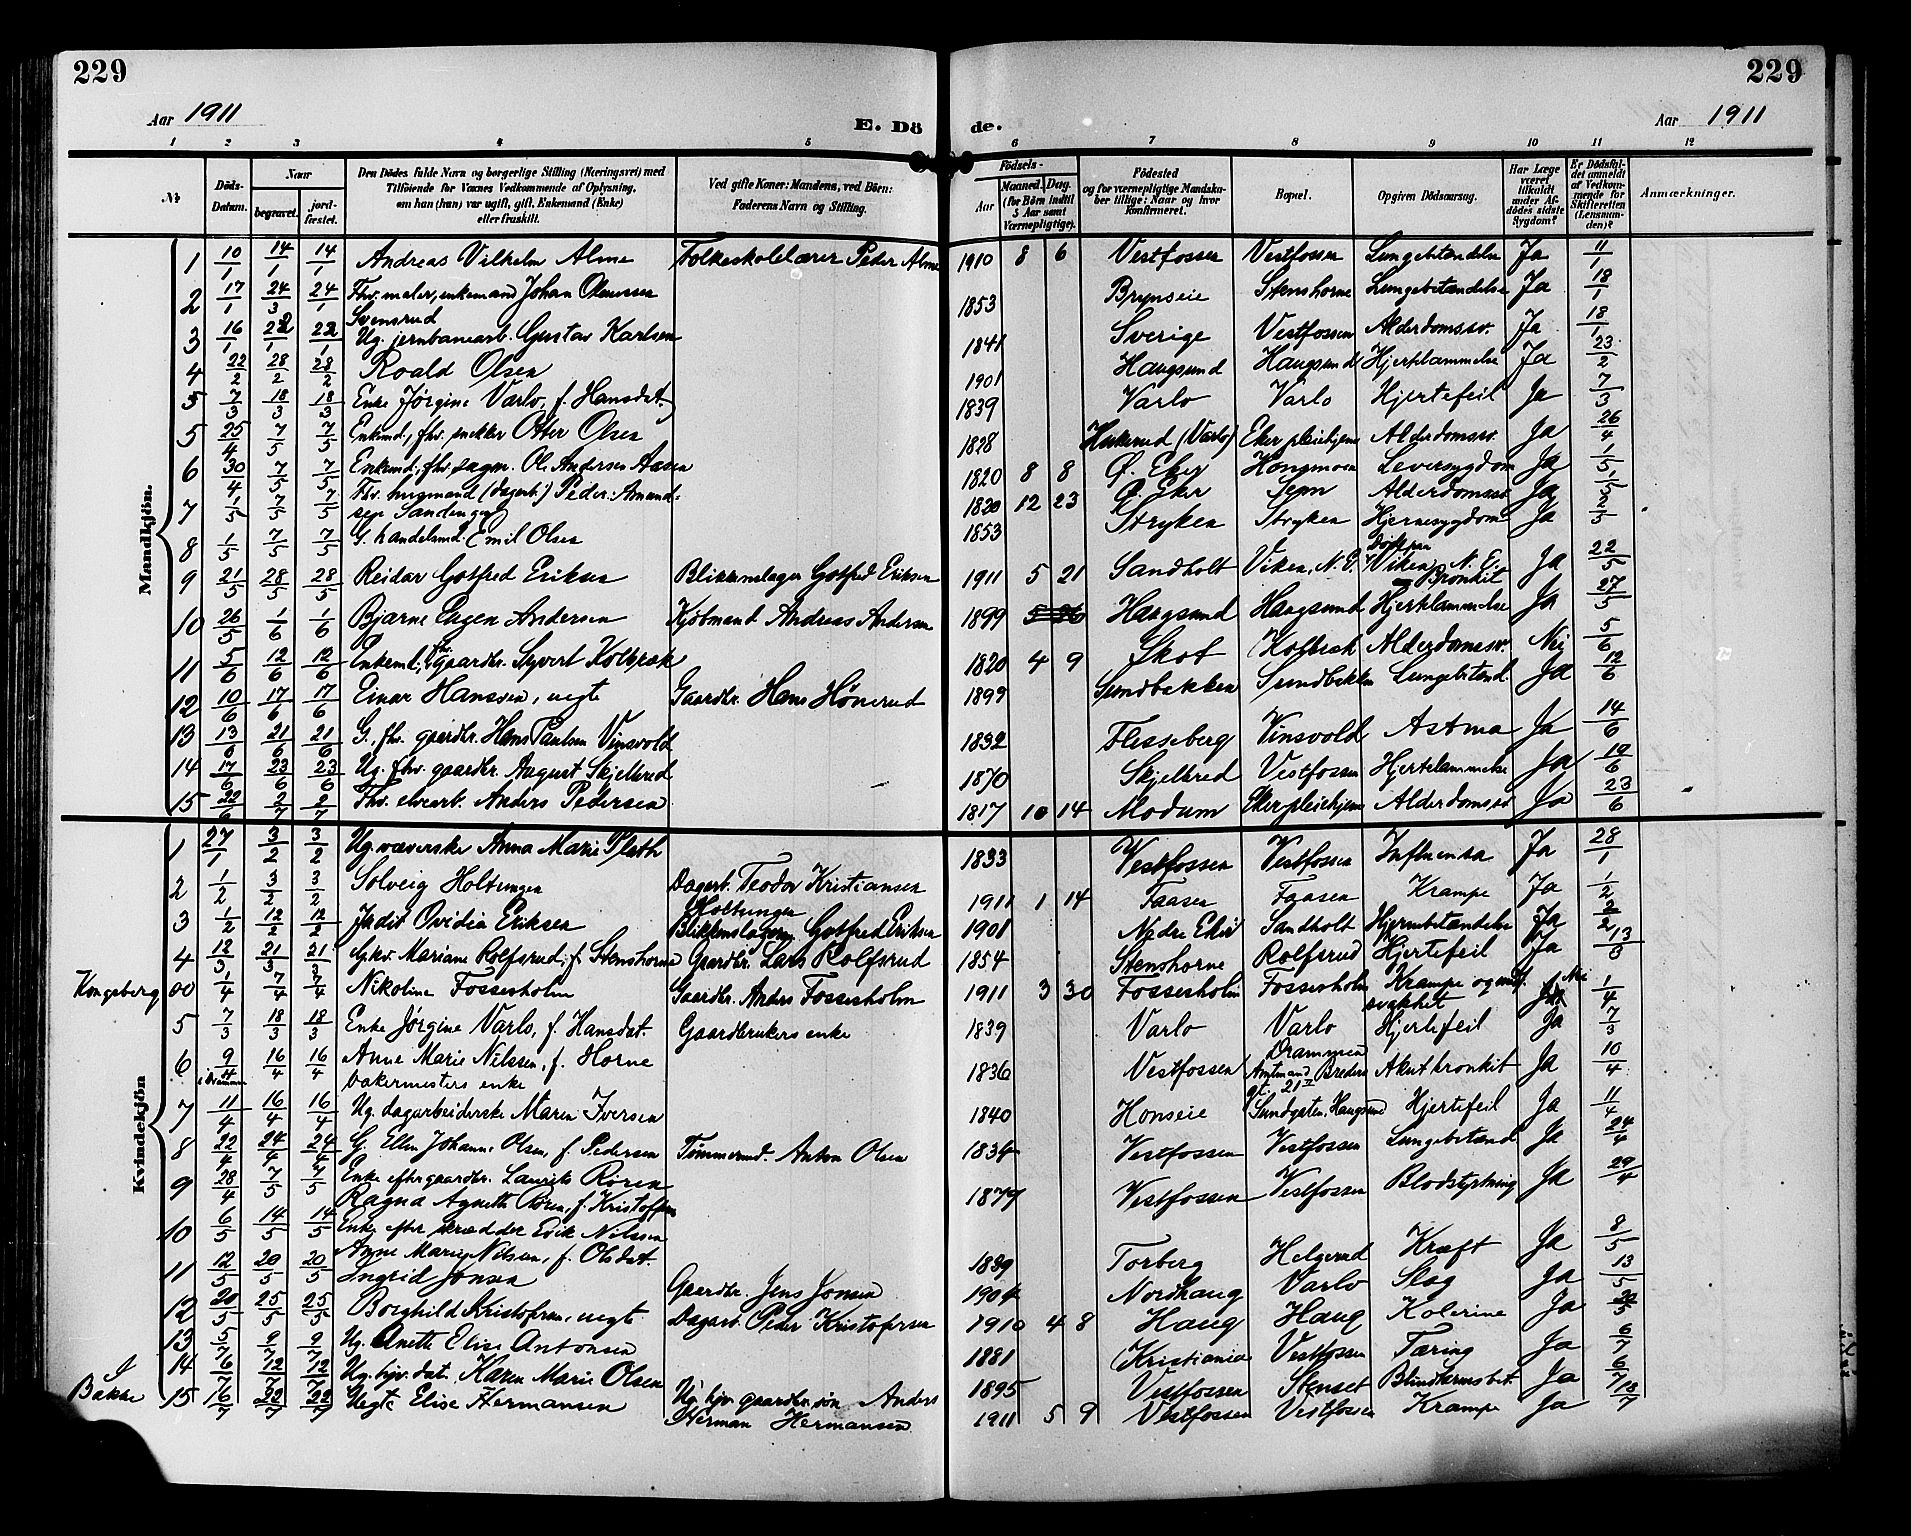 229
229
Aar 1911
E. Dö
de.
Aar 1911
1 2 3 4 5 6 7 8 9 10 11 12
Nr.
Döds-Datum.
Naar
begravet.
jordfæstet.
Den Dödes fulde Navn og borgerlige Stilling (Næringsvei) med
Tilföiende for Voxnes Vedkommende af Oplysning,
om han (hun) var ugift, gift, Enkemand (Enke)
eller fraskilt.
Ved gifte Koner: Mandens, ved Börn:
Faderens Navn og Stilling.
Födsels-
Aar
Maaned. Dag.
(for Börn indtil
5 Aar samt
Værnepligtige).
Födested
og for værnepligtige Mandskaber tillige: Naar og hvor
konfirmeret.
Bopæl.
Opgiven Dödsaarsag.
Har Læge
været
tilkaldt
under Afdödes sidste
Sygdom?
Er Dödsfaldet anmeldt
af Vedkommende for
Skifteretten
(Lensmanden)?
Anmærkninger.
Mandkjön.
1 10/1 14/1 14/1 Andreas Vilhelm Alme Folkeskolelærer Peder Alme 1910 8 6 Vestfossen Vestfossen Lungebetændelse Ja 11/1
2 17/1 24/3 24/1 Fhv. maler, enkemand Johan Olaussen 1853 Brynseie Stenshorne Lungebetændelse Ja 18/1
Svensrud
3 16/1 22/1 22/1 Ug. jernbanearb. Gustav Karlsen 1841 Sverige Vestfossen Alderdomssv. Ja 18/1
4 22/2 28/2 28/2 Roald Olsen 1901 Haugsund Haugsund Hjertelammelse Ja 23/2
5 7/3 18/3 18/3 Enke Jørgine Varlo, f. Hansdat. 1839 Varlo Varlo Hjertefeil Ja 7/3
5 25/4 7/5 7/5 Enkemd., fhv. snekker Otter Olsen 1828 (Varlo) Eker pleiehjem Alderdomssv. Ja 26/4
6 30/4 7/5 7/5 Enkemd., fhv. sagm. Ol. Andersen Aasen 1820 8 8 Ø. Eker Hongmoen Leversygdom Ja 1/5
7 1/5 7/5 7/5 Fhv. husmand (dagarb.) Peder Amund- 1820 12 23 Ø. Eker Sem Alderdomssv. Ja 1/5
sen Sandengen
8 1/5 7/5 7/5 G. handelsmd. Emil Olsen 1853 Stryken Stryken Hjernesygdom Ja 2/5
9 21/5 28/5 28/5 Reidar Gotfred Eriksen Blikkenslager Gotfred Eriksen 1911 5 21 Sandholt Viken, N. E. død paa Viken, N. E. Bronkit Ja 22/5
10 26/5 1/6 1/6 Bjarne Eugen Andersen Kjøbmand Andreas Andersen 1899 5 26 Haugsund Haugsund Hjertelammelse Ja 27/5
11 5/6 12/6 12/6 Enkemd., fhv. gaardbr. Syvert Kolbræk 1820 4 9 Skot Kolbræk Alderdomssv. Nei 5/6
12 10/6 17/6 17/6 Einar Hanssen, uegte Gaardbr. Hans Hønerud 1899 Sundbakken Sundbakken Lungebetænd. Ja 12/6
13 13/6 21/6 21/6 G., fhv. gaardbr. Hans Paulsen Vinsvold 1832 Flesseberg Vinsvold Astma Ja 14/6
14 17/6 23/6 23/6 Ug. fhv. gaardbr. August Skjelbred 1870 Skjelbred Vestfossen Hjertelammelse Ja 19/6
15 22/6 2/7 2/7 Fhv. elvearb. Anders Pedersen 1817 10 14 Modum Eker pleiehjem Alderdomssv. Ja 23/6
Kvindekjön
1 27/1 3/2 3/2 Ug. væverske Anna Marie Plath 1833 Vestfossen Vestfossen Influensa Ja 28/1
2 1/2 3/2 3/2 Solveig Holtungen Dagarb. Teodor Kristiansen 1911 1 14 Faasen Faasen Krampe Ja 1/2
Holtungen
3 1/2 12/2 12/2 Judit Ovidia Eriksen Blikkenslager Gotfred Eriksen 1901 Nedre Eker Sandholt Hjernebetændelse Ja 2/2
4 12/3 21/3 21/3 Gkv. Mariane Rolfsrud, f. Stenshorne Gaardbr. Lars Rolfsrud 1854 Stenshorne Rolfsrud Hjertefeil Ja 13/3
Kongsberg 00 1/4 7/4 7/4 Nikoline Fossesholm Gaardbr. Anders Fossesholm 1911 3 30 Fossesholm Fossesholm Krampe og medf. svakhet Nei 1/4
5 7/3 18/3 18/3 Enke Jørgine Varlo, f. Hansdat. Gaardbrukers enke 1839 Varlo Varlo Hjertefeil Ja 7/3
6 9/4 i Drammen 16/4 16/4 Anne Marie Nilssen, f. Horne 1836 Vestfossen Drammen Amtmand Breders gt. 21 Akut bronkit Ja 10/4
bakermesters enke
7 11/4 16/4 16/4 Ug. dagarbeiderske Maren Iversen 1840 Honseie Sundgaten, Haugsund Hjertefeil Ja 11/4
8 22/4 24/4 24/4 G. Ellen Johanne Olsen, f. Pedersen Tømmermd. Anton Olsen 1834 Vestfossen Vestfossen Lungebetænd Ja 24/4
9 28/4 7/5 7/5 Enke efter gaardbr. Laurits Røren 1879 Vestfossen Vestfossen Blodstyrtning Ja 29/4
Ragna Agnethe Røren, f. Kristoffersen
10 6/5 14/5 14/5 Enke efter skrædder Erik Nilssen 1839 Torberg Helgerud Kræft Ja 8/5
Anne Marie Nilsen, f. Olsdat.
11 12/5 20/5 20/5 Ingrid Jonsen Gaardbr. Jens Jonsen 1904 Nordhaug Varlo Slag Ja 13/5
12 20/5 25/5 25/5 Borghild Kristofersen, uegte Dagarb. Peder Kristofersen 1910 4 8 Haug Haug Kolerine Ja 20/5
13 5/7 9/7 9/7 Ug. Anette Elise Antonsen 1881 Kristiania Vestfossen Tæring Ja 6/7
14 6/7 12/7 12/7 Ug. hjv. dat. Karen Marie Olsen 1895 Vestfossen Stenset Blindtarmsbet. Ja 6/7
I Bakke 15 16/7 22/7 22/7 Uegte Elise Hermansen Ug. hjv. gaardbr. søn Anders 1911 5 9 Vestfossen Vestfossen Krampe Ja 18/7
Herman Hermansen